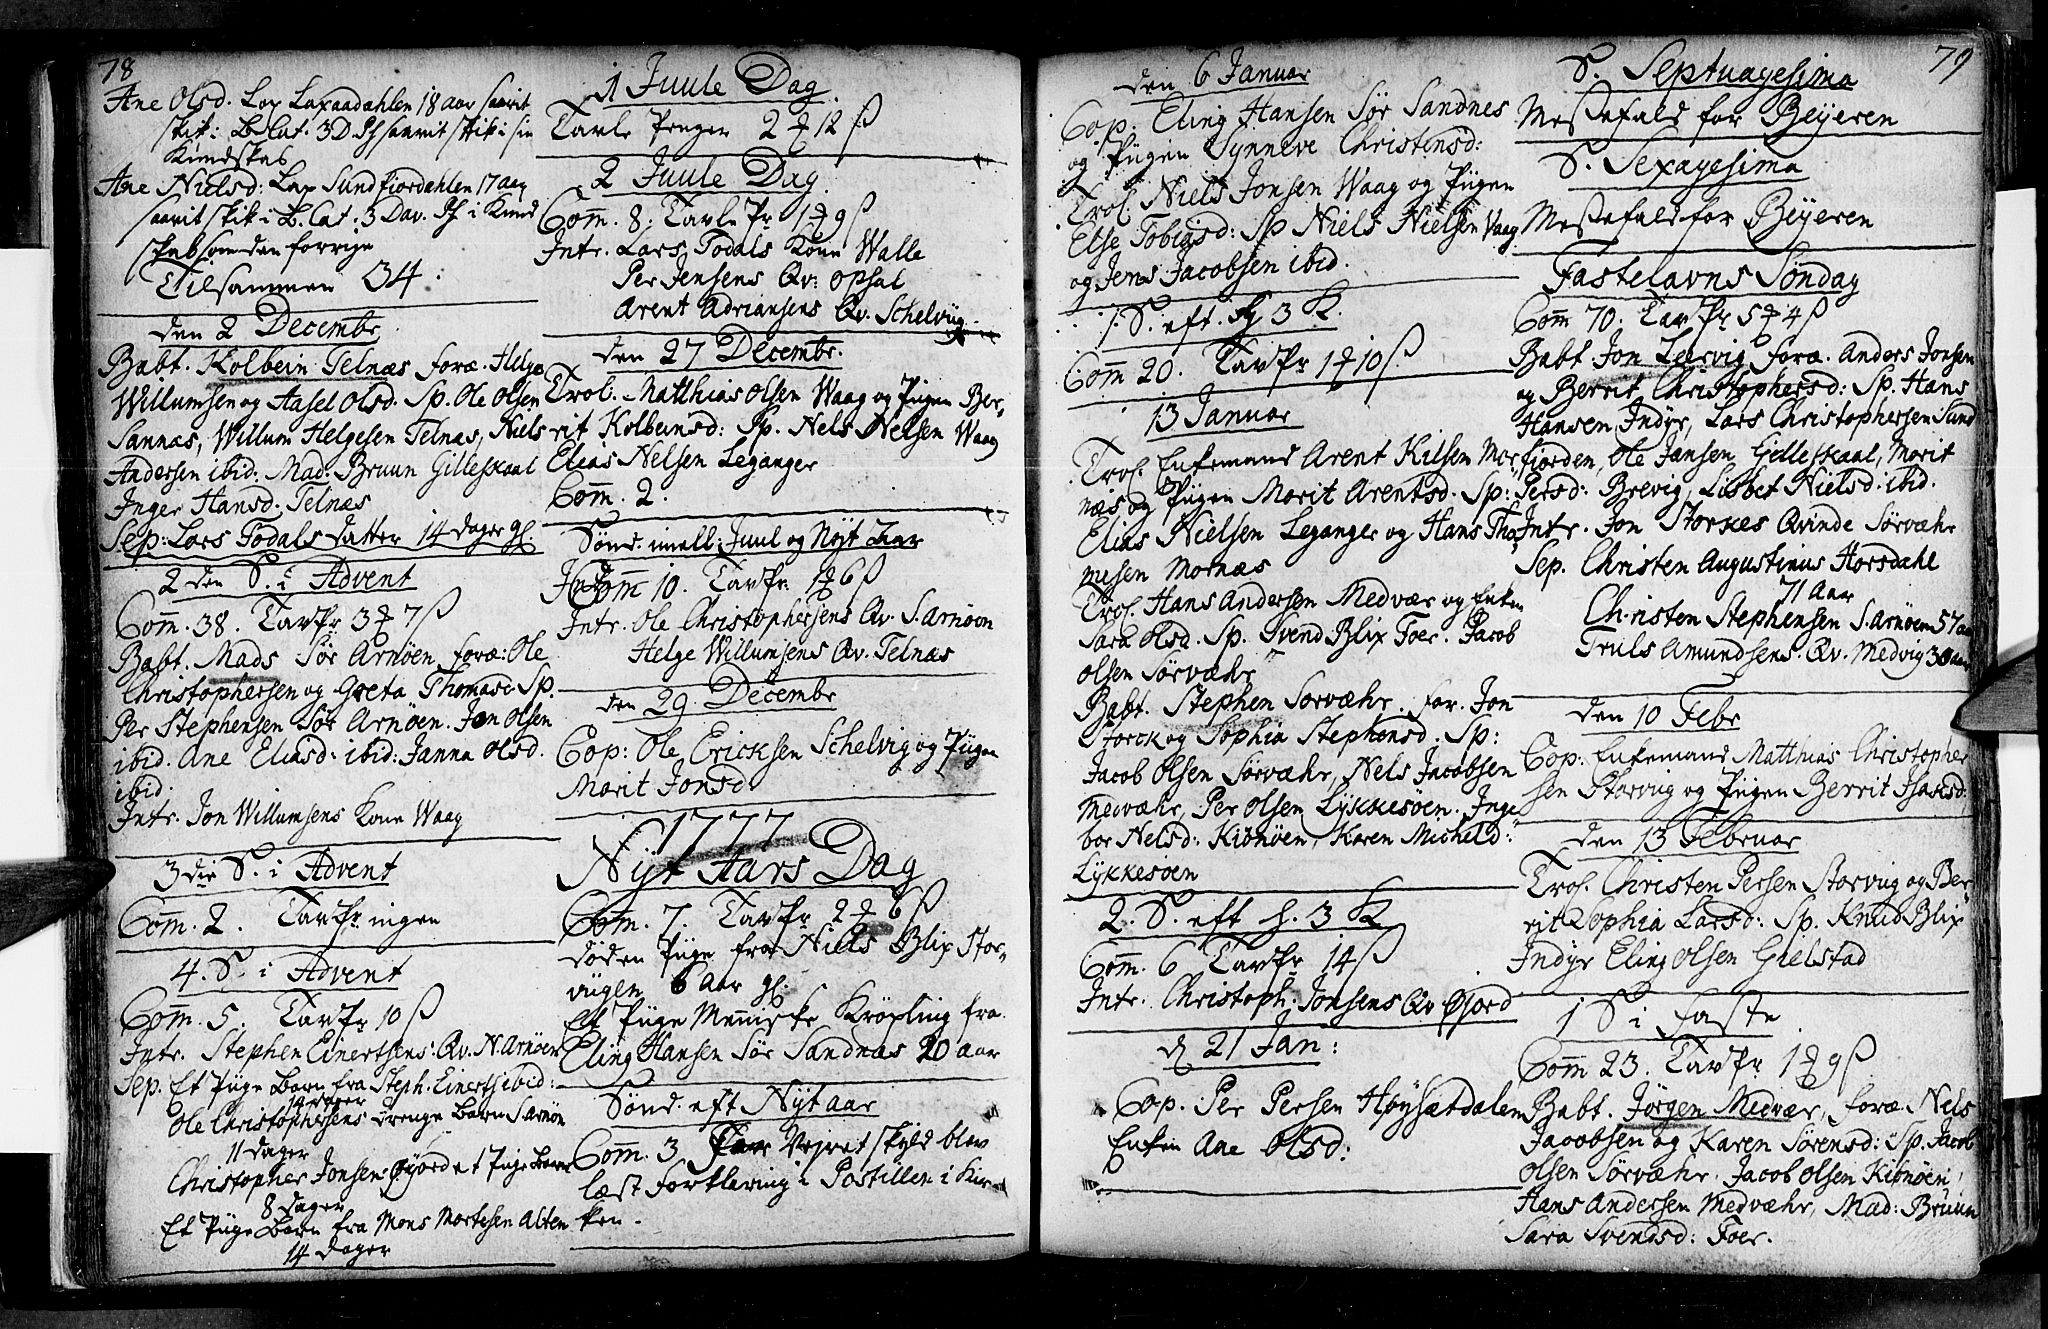 78
Ane Olsd. Lap Laxaadahlen 18 aar saavit
skik i B. Cat. 3 D Ps saavit skik i sin
Kundskab
Ane Nielsd: Lap Sundfiordahlen 17 aar
saavit skik i B. Cat: 3 Dav. Ps i Kund
skab som den forrige
Tilsammen 34:
den 2 Decembr
Babt. Kolbein Telnæs foræ. Helge
Willumsen og Aasel Olsd. Sp. Ole Olsen
Sannæs, Willum Helgesen Telnæs, Niels
Andersen ibid: Mad: Bruun Gilleskaal
Inger Hansd. Telnæs
Sep: Lars Todals datter 14 dager gl.
2 den S. i Advent
Com̄. 38. Tavlpr 3 ₰ 7 ß
Babt. Mads Sør Arnøen foræ: Ole
Christophersen og Greta Thomasd Sp.
Per Stephensen Sør Arnøen. Jon Olsen
ibid. Ane Eliasd: ibid: Janna Olsd.
ibid.
Intr. Jon Willumsens Kone Waag
3 die S. i Advent
Com̄. 2. Tavlpr ingen
4. S. i Advent
Com̄. 5. Tavlpr 10 ß
Intr. Stephen Einertsens Qv. N. Arnøen
Sep. Et Pige Barn fra Steph. Einertz ibid:
14 dager
Ole Christophersens Drenge Barn S. Arnøn
11 Dager
Christopher Jonsen Giord et Pige Barn
8 dager
Et Pige Barn fra Mons Mortesen Alten
14 dager
1 Juule Dag
Tavle Penger 2 ₰ 12 ß
2 Juule Dag
Com̄. 8. Tavle Pr 1 ₰ 9 ß
Intr. Lars Todals Kone Walle
Per Jensens Qv: Opsal
Arent Adriansens Qv. Schelvug
den 27 Decembr.
Trol. Matthias Olsen Waag og Pigen Ber-
rit Kolbeinsd: Sp. Nels Nelsen Waag
Elias Nelsen Leganger
Com̄. 2.
Sønd. imell: Juul og Nyt Aar
Com̄ 10. Tavlpr 1 ₰ 6 ß
Intr. Ole Christophersens Qv. S. Arnøen
Helge Willumsens Qv. Telnæs
den 29 Decembr
Cop: Ole Ericksen Schelvig og Pigen
Morit Jonsd.
1777
Nyt Aars Dag
Com̄. 7. Tavlpr 2 ₰ 6 ß
døden Pige fra Niels Blix Stor-
vigen 6 Aar gl.
Et Pige Meniske Krøpling fra
Eling Hansen Sør Sandnæs 20 aar
Sønd. eft Nyt aar
Com̄. 3 Vejret skyld blev
læst Forklaring i Postillen i Kir-
ken.
den 6 Januar
Cop. Eling Hansen Sør Sandnes
og Pigen Synneve Christensd:
Trol. Niels Jonsen Waag og Pigen
Else Tobiasd: Sp Niels Nielsen Waag
og Jens Jacobsen ibid.
1. S. eft. H 3 K.
Com̄ 20. Tavlpr 1 ₰ 10 ß
13 Januar
Trol. Enkemand Arent Kilsen Mor-
næs og Pigen Morit Arentsd. Sp:
Elias Nielsen Leganger og Hans Tho-
mesen Mornæs
Trol. Hans Andersen Medvær og Enken
Sara Olsd. Sp. Svend Blix Foer. Jacob
Olsen Sørvæhr
Babt. Stephen Sørvæhr. For. Jon
Storck og Sophia Stephensd. Sp:
Jacob Olsen Sørvæhr, Nels Jacobsen
Medvæhr, Per Olsen Lykkesøen. Inge
bor Nelsd: Kionøen, Karen Micheld:
Lykkesøen
2. S. eft H. 3 K
Com̄. 6 Tavlpr 14 ß
Intr. Christoph. Jonsens Qv Giord
d 21 Jan:
Cop. Per Persen Høysætdalen
Enken Ane Olsd:
79
S. Septuagesima
Messefald for Beyeren
S. Sexagesima
Messefald for Beyeren
Fastelavns Søndag
Com̄ 70. Tavlpr 5 ₰ 4 ß
Babt. Jon Leervig foræ. Anders Jonsen
og Berrit Christophersd: Sp. Hans
Hansen Indyr, Lars Christophersen Sund
fiorden, Ole Jansen Gilleskaal, Morit
Persd: Brevig, Lisbet Nielsd: ibid.
Intr. Jon Storkes Qvinde Sørvæhr
Sep. Christen Augustinus Horsdahl
71 Aar
Christen Stephensen S. Arnøen 57 aar
Truls Amundsens Qv. Medvig 30 aar
den 10 Febr
Cop: Enkemand Matthias Christopher
sen Storvig og Pigen Berrit Isacsd.
den 13 Februar
Trol. Christen Persen Storvig og Ber-
rit Sophia Larsd: Sp. Knud Blix
Indyr Eling Olsen Gielstad
1 S i Faste
Com̄ 23. Tavlpr 1 ₰ 9 ß.
Babt. Jørgen Medvær, foræ. Nels
Jacobsen og Karen Sørensd: Sp. Jacob
Olsen Sørvæhr. Jacob Olsen Kionøen,
Hans Andersen Medvæhr, Mad: Bruun
Sara Svendsd: Foer.